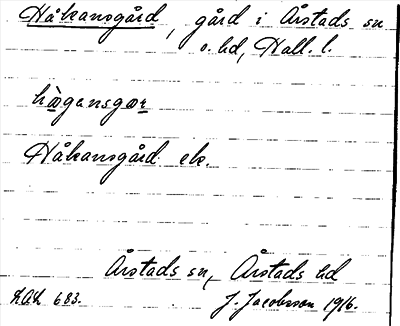 Håkansgård, gård i Årstads sn
o. hd, Hall. l.
hågansgær
Håkansgård ek.
Årstads sn, Årstads hd
KAH 683. J. Jacobsson 1916.